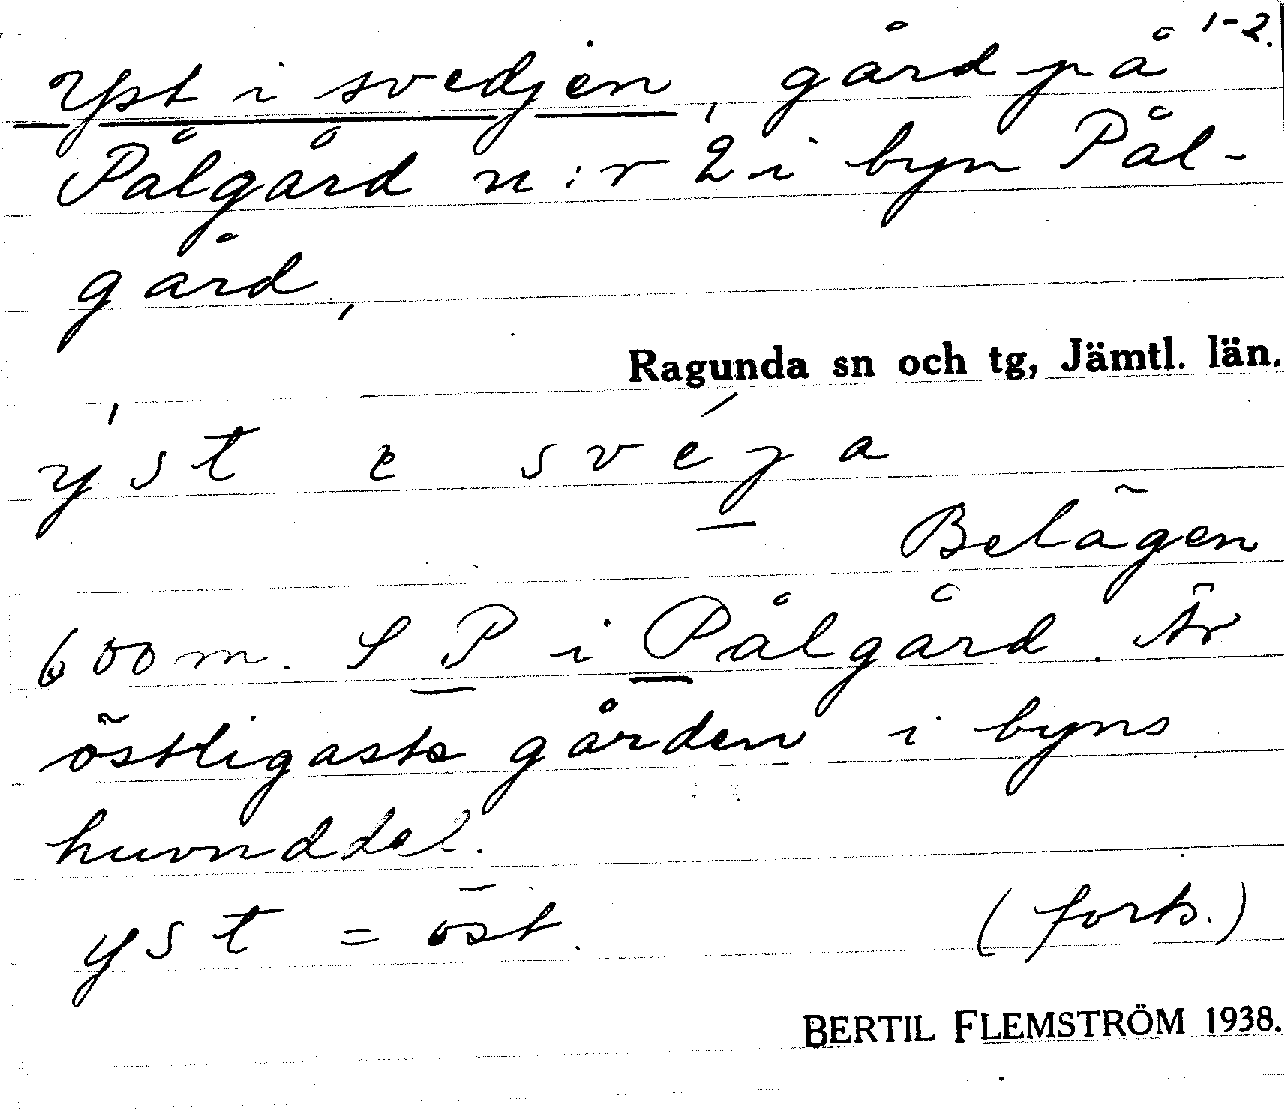 1-2.
Yst i svedjen, gård på
Pålgård n:r 2 i byn Pål-
gård,
Ragunda sn och tg, Jämtl. län.
ýst e svéja
Belägen
600 m. S P i Pålgård. Är
östligaste gården i byns
huvuddel.
yst = öst. (forts.)
BERTIL FLEMSTRÖM 1938.